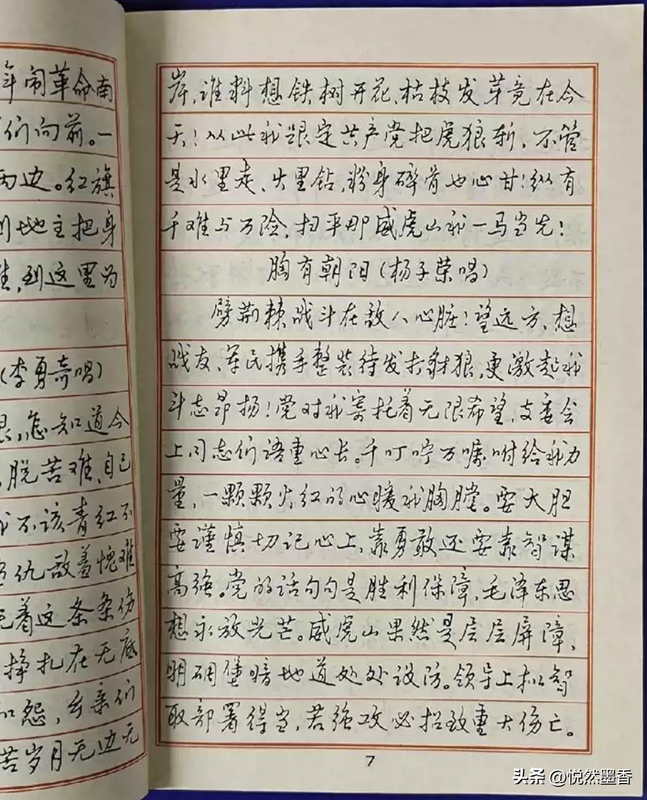 年闹革命南
们向前。一
两边。红旗
到地主把身
难，到这里为
（李勇奇唱）
恩，怎知道今
脱苦难，自己
我不该青红不
亲仇敌羞愧难
着这条条伤
挣扎在无底
和怨，乡亲们
苦岁月无边无
岸，谁料想铁树开花、枯枝发芽竟在今
天！从此我跟定共产党把虎狼斩，不管
是水里走、火里钻，粉身碎骨也心甘！纵有
千难与万险，扫平那威虎山我一马当先！
胸有朝阳（杨子荣唱）
劈荆棘战斗在敌人心脏！望远方，想
战友、军民携手整装待发打豺狼，更激起我
斗志昂扬！党对我寄托着无限希望，支委会
上同志们语重心长。千叮咛万嘱咐给我力
量，一颗颗火红的心暖我胸膛。要大胆
要谨慎切记心上，靠勇敢还要靠智谋
高强。党的话句句是胜利保障，毛泽东思
想永放光芒。威虎山果然是层层屏障，
明碉堡暗地道处处设防。领导上拟智
取部署得当，若强攻必招致重大伤亡。
7
头条 @悦然墨香